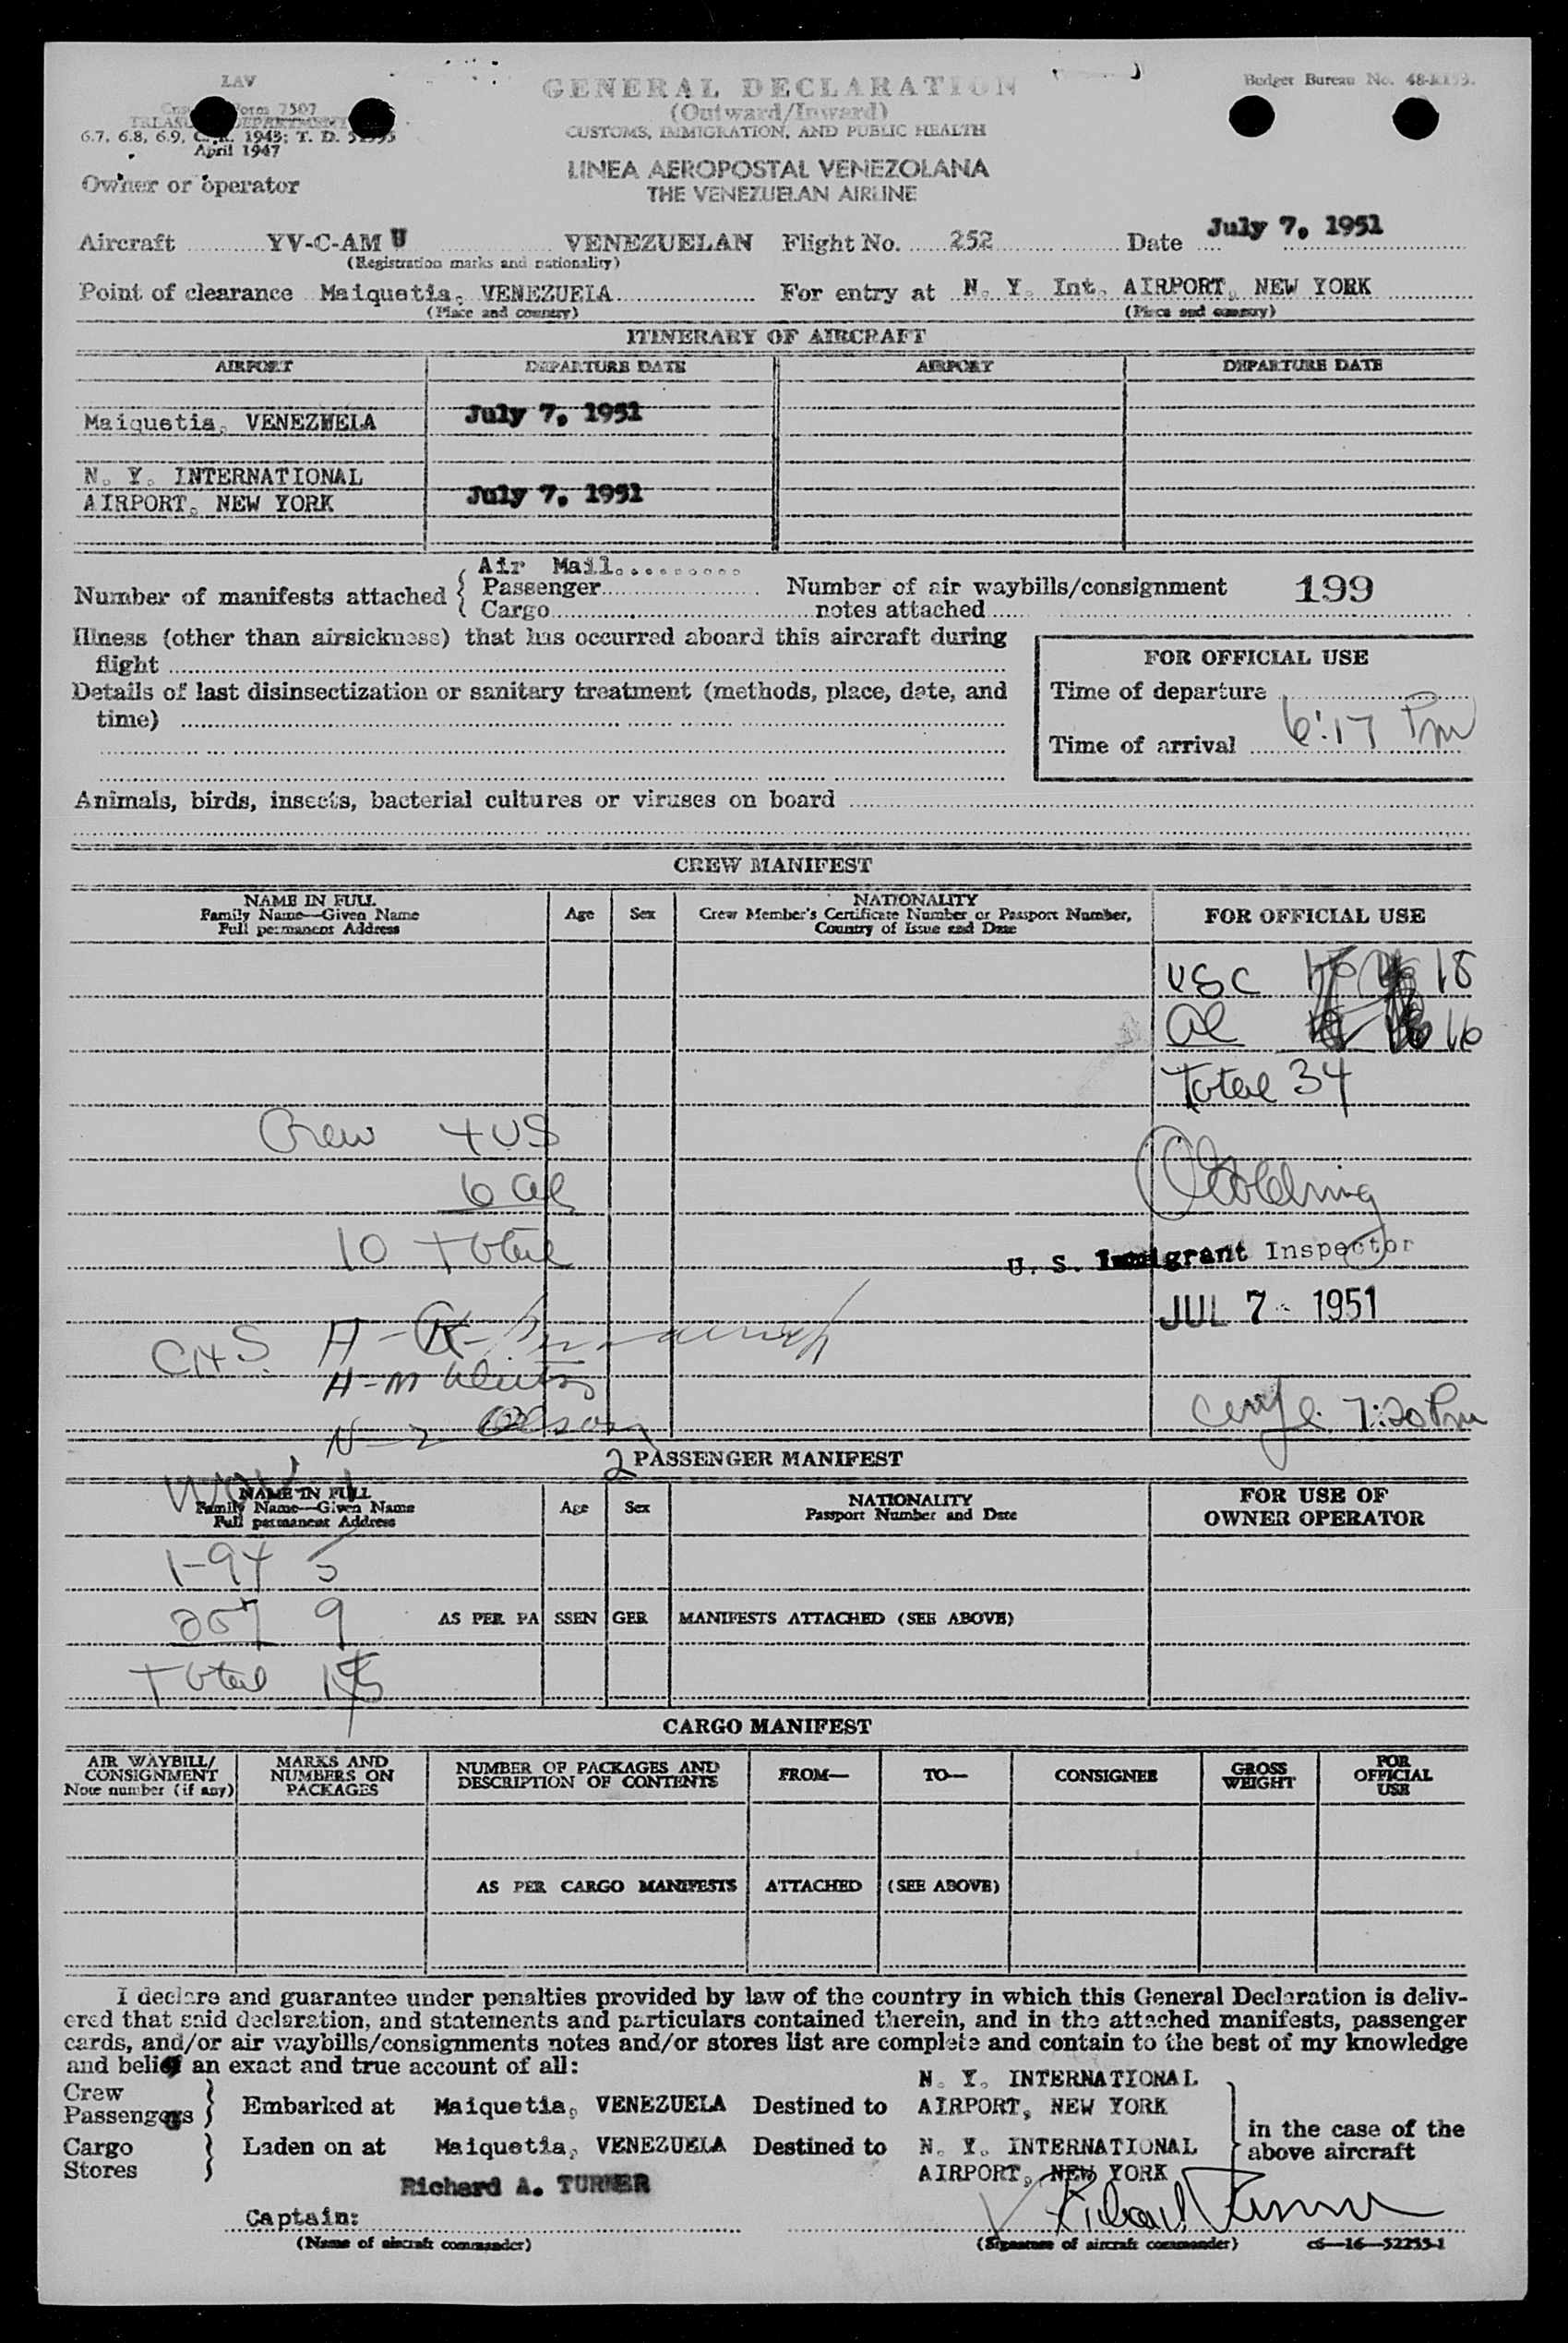 LAV
Form 7507
TREASURY DEPARTMENT
6.7, 6.8, 6.9, C.R. 1943; T. D.
April 1947
GENERAL DECLARATION
(Outward/Inward)
CUSTOMS, IMMIGRATION, AND PUBLIC HEALTH
Budget Bureau No.
LINEA AEROPOSTAL VENEZOLANA
THE VENEZUELAN AIRLINE
Owner or operator
Aircraft YV-C-AM U VENEZUELAN Flight No. 252 Date July 7, 1951
(Registration marks and nationality)
Point of clearance Maiquetia, VENEZUELA For entry at N. Y. Int. AIRPORT, NEW YORK
(Place and country) (Place and country)
ITINERARY OF AIRCRAFT
AIRPORT DEPARTURE DATE AIRPORT DEPARTURE DATE
Maiquetia, VENEZUELA July 7, 1951
N. Y. INTERNATIONAL
AIRPORT, NEW YORK July 7, 1951
Air Mail..........
Number of manifests attached { Passenger Number of air waybills/consignment 199
Cargo notes attached
Illness (other than airsickness) that has occurred aboard this aircraft during
flight
Details of last disinsectization or sanitary treatment (methods, place, date, and
time)
FOR OFFICIAL USE
Time of departure
Time of arrival 6:17 Pm
Animals, birds, insects, bacterial cultures or viruses on board
CREW MANIFEST
NAME IN FULL
Family Name—Given Name
Full permanent Address
Age Sex
NATIONALITY
Crew Member's Certificate Number or Passport Number,
Country of Issue and Date
FOR OFFICIAL USE
USC 18
al 16
Total 34
Crew 4 US
6 al
10 Total
U. S. Immigrant Inspector
JUL 7 - 1951
CHS
7:20 Pm
2 PASSENGER MANIFEST
NAME IN FULL
Family Name—Given Name
Full permanent Address
Age Sex
NATIONALITY
Passport Number and Date
FOR USE OF
OWNER OPERATOR
1-94 5
257 9
AS PER PASSENGER MANIFESTS ATTACHED (SEE ABOVE)
Total
CARGO MANIFEST
AIR WAYBILL/
CONSIGNMENT
Note number (if any)
MARKS AND
NUMBERS ON
PACKAGES
NUMBER OF PACKAGES AND
DESCRIPTION OF CONTENTS
FROM— TO— CONSIGNEE
GROSS
WEIGHT
FOR
OFFICIAL
USE
AS PER CARGO MANIFESTS ATTACHED (SEE ABOVE)
I declare and guarantee under penalties provided by law of the country in which this General Declaration is deliv-
ered that said declaration, and statements and particulars contained therein, and in the attached manifests, passenger
cards, and/or air waybills/consignments notes and/or stores list are complete and contain to the best of my knowledge
and belief an exact and true account of all:
Crew
Passengers } Embarked at Maiquetia, VENEZUELA Destined to N. Y. INTERNATIONAL
AIRPORT, NEW YORK
Cargo
Stores } Laden on at Maiquetia, VENEZUELA Destined to N. Y. INTERNATIONAL
AIRPORT, NEW YORK
in the case of the
above aircraft
Richard A. TURNER
Captain:
Richard Turner
(Name of aircraft commander) (Signature of aircraft commander) c6—16—52255-1